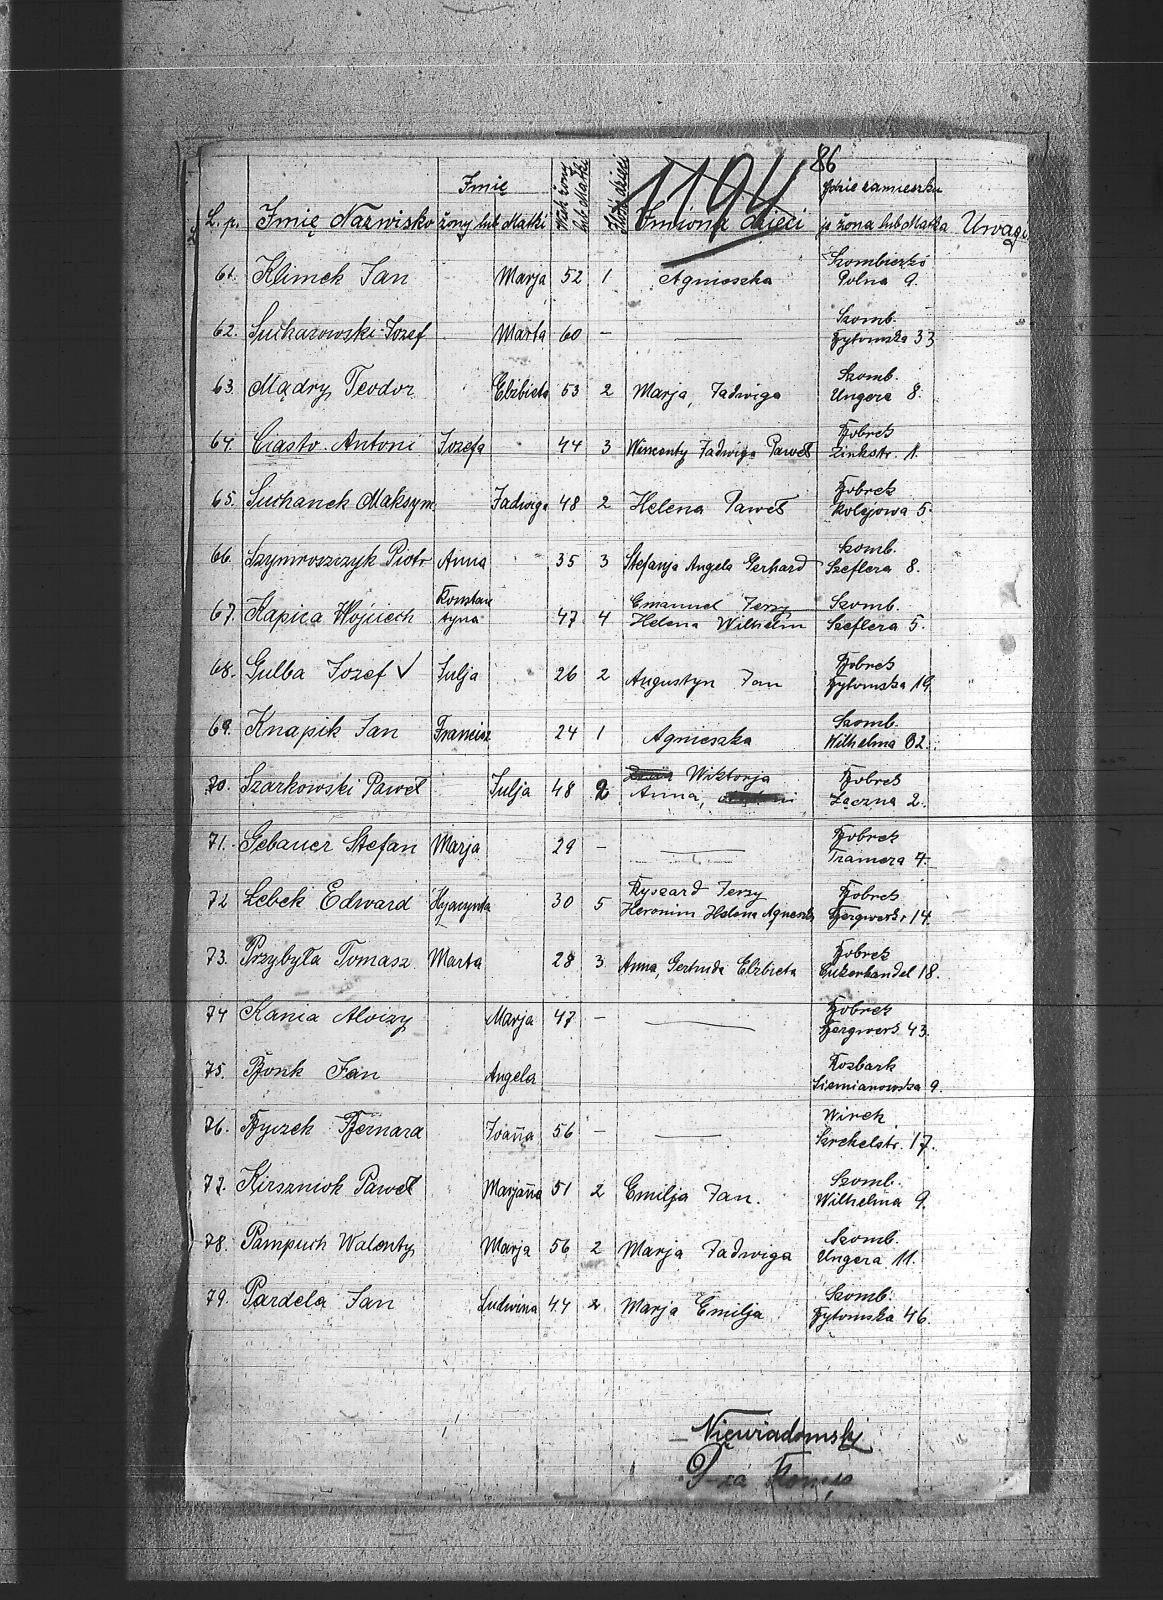 86
1194
Imię
Wiek żony lub Matki
Ilość dzieci
gdzie zamieszku
L. p. Imię Nazwisko żony lub Matki Imiona dzieci je żona lub Matka Uwagi
Szombierki
61. Klimek Jan Marja 52 1 Agnieszka Polna 9.
Szomb.
62. Sucharowski Józef Marta 60 — — Bytomska 33
Szomb.
63. Mądry Teodor Elżbieta 53 2 Marja, Jadwiga Ungera 8.
Bobrek
64. Ciasto Antoni Jozefa 44 3 Wincenty Jadwiga Paweł Zinkstr. 1.
Bobrek
65. Suchanek Maksym. Jadwiga 48 2 Helena Paweł Kolejowa 5.
Szomb.
66. Szymroszczyk Piotr Anna 35 3 Stefanja Angela Gerhard Szeflera 8.
Konstan Emanuel Jerzy Szomb.
67. Kapica Wojciech tyna 47 4 Helena Wilhelm Szeflera 5.
Bobrek
68. Gulba Jozef √ Julja 26 2 Augustyn Jan Bytomska 19.
Szomb.
69. Knapik Jan Francisz 24 1 Agnieszka Wilhelma 82.
Wiktorja Bobrek
70. Szarkowski Paweł Julja 48 2 Anna, Łączna 2.
Bobrek
71. Gebauer Stefan Marja 29 — — Tramera 4.
Ryszard Jerzy Bobrek
72 Lebek Edward Hyacynta 30 5 Heronim Helena Agnieszk Bergwerk. 14.
Bobrek
73. Przybyła Tomasz Marta 28 3 Anna, Gertruda Elżbieta 18.
Bobrek
74 Kania Aloizy Marja 47 — — Bergwerk 43.
Rozbark
75. Bonk Jan Angela Siemianowska 9.
Wirek
76. Byczek Bernard Joanna 56 — — 17.
Szomb.
77. Kirszniok Paweł Marjanna 51 2 Emilja Jan. Wilhelma 9.
Szomb.
78. Pampuch Walenty Marja 56 2 Marja Jadwiga Ungera 11.
Szomb.
79. Pardela Jan Ludwina 44 2 Marja Emilja Bytomska 46.
Niewiadomski